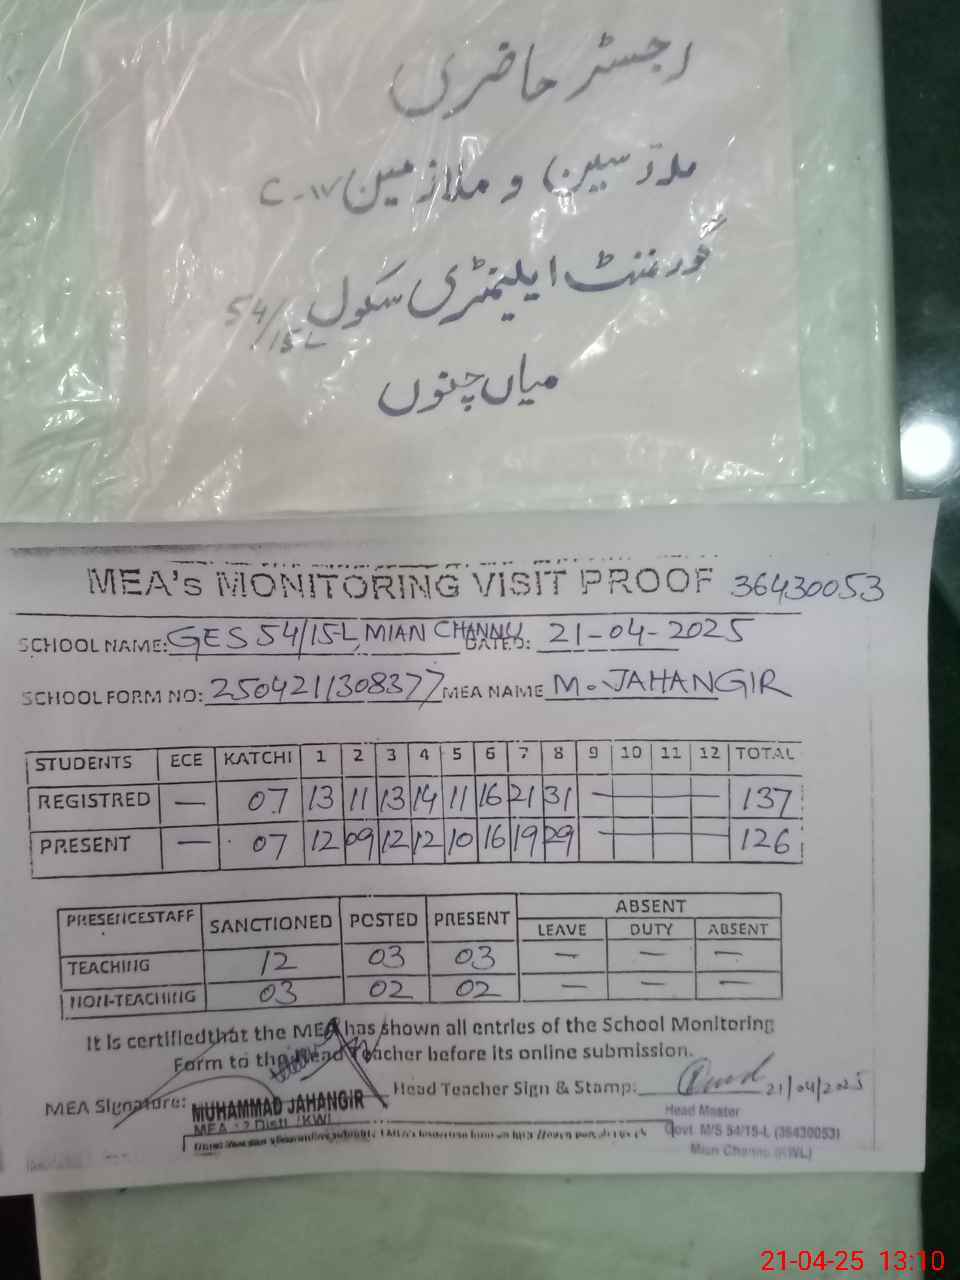 رجسٹر حاضری
مدرسین و ملازمین C-IV
گورنمنٹ ایلیمنٹری سکول 54/15L
میاں چنوں
MEA's MONITORING VISIT PROOF 36430053
SCHOOL NAME: GES 54/15-L, MIAN CHANNU DATED: 21-04-2025
SCHOOL FORM NO: 2504211308377 MEA NAME M. JAHANGIR
STUDENTS ECE KATCHI 1 2 3 4 5 6 7 8 9 10 11 12 TOTAL
REGISTRED — 07 13 11 13 14 11 16 21 31 — 137
PRESENT — 07 12 09 12 12 10 16 19 29 — 126
PRESENCESTAFF SANCTIONED POSTED PRESENT ABSENT
LEAVE DUTY ABSENT
TEACHING 12 03 03 — — —
NON-TEACHING 03 02 02 — — —
It is certifiedthat the MEA has shown all entries of the School Monitoring
Form to the Head Teacher before its online submission.
MEA Signature: MUHAMMAD JAHANGIR Head Teacher Sign & Stamp: 21/04/2025
Head Master
Govt. M/S 54/15-L (36430053)
Mian Channu (KWL)
21-04-25 13:10